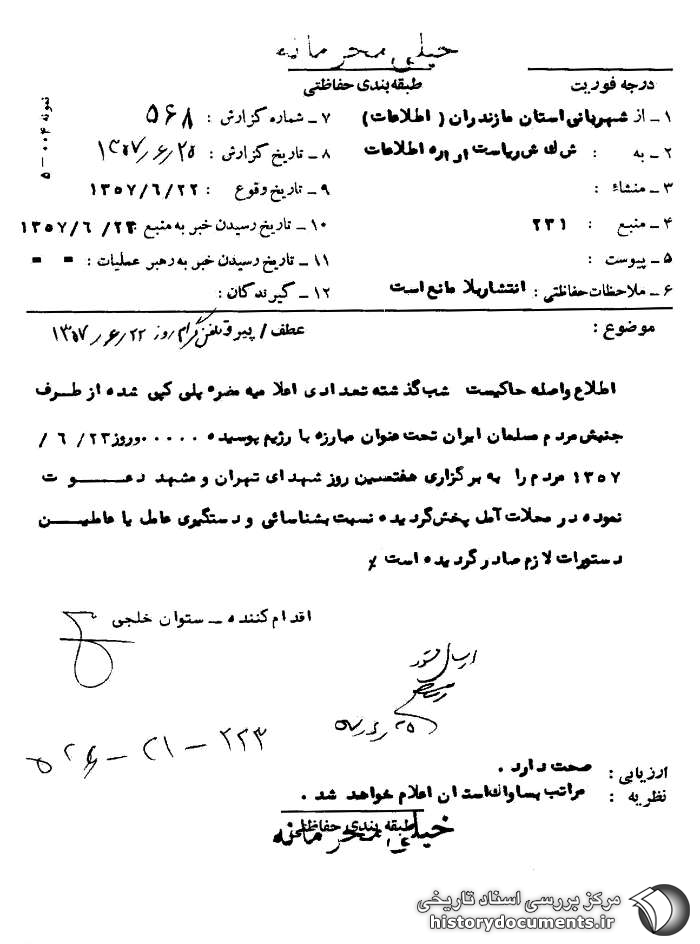 خیلی محرمانه
درجه فوریت
طبقه بندی حفاظتی
نمونه ۰۰۴ - ۵
۱ - از شهربانی استان مازندران ( اطلاعات )
۷ - شماره گزارش : ۵۶۸
۲ - به : ش ک ش ریاست اداره اطلاعات
۸ - تاریخ گزارش : ۱۳۵۷/۶/۲۵
۳ - منشاء :
۹ - تاریخ وقوع : ۱۳۵۷/۶/۲۲
۴ - منبع : ۲۳۱
۱۰ - تاریخ رسیدن خبر به منبع : ۱۳۵۷/۶/۲۳
۵ - پیوست :
۱۱ - تاریخ رسیدن خبر به رهبر عملیات : = =
۶ - ملاحظات حفاظتی : انتشار بلا مانع است
۱۲ - گیرندگان :
موضوع :
عطف / پیرو تلفن گرام روز ۱۳۵۷/۶/۲۲
اطلاع واصله حاکیست شب گذشته تعدادی اعلامیه مضره پلی کپی شده از طرف
جنبش مردم مسلمان ایران تحت عنوان مبارزه با رژیم پوسیده ۰۰۰۰۰ وروز ۲۳/ ۶ /
۱۳۵۷ مردم را به برگزاری هفتمین روز شهدای تهران و مشهد دعوت
نموده در محلات آمل پخش گردیده نسبت بشناسائی و دستگیری عامل یا عاملین
دستورات لازم صادر گردیده است /
اقدام کننده - ستوان خلجی
ارسال شود
۲۲۳ - ۲۱ -
ارزیابی : صحت دارد .
نظریه : مراتب بساواک استان اعلام خواهد شد .
طبقه بندی حفاظتی
خیلی محرمانه
مرکز بررسی اسناد تاریخی
historydocuments.ir